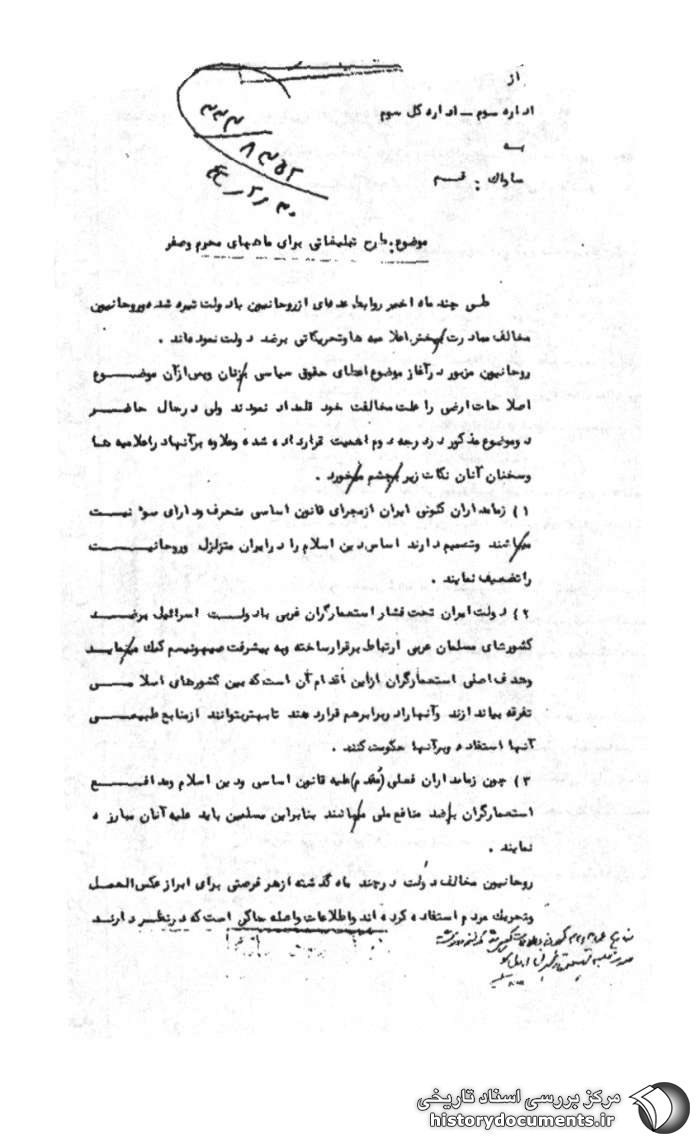 از
اداره سوم – اداره کل سوم
به
ساواک : قم
۳۳۳
۸
موضوع : طرح تبلیغاتی برای ماههای محرم و صفر
طی چند ماه اخیر روابط عده‌ای از روحانیون با دولت تیره شده و روحانیون
مخالف مبادرت به پخش اعلامیه ها و تحریکاتی بر ضد دولت نموده‌اند .
روحانیون مزبور در آغاز موضوع اعطای حقوق سیاسی به زنان و پس از آن موضوع
اصلاحات ارضی را علت مخالفت خود قلمداد نمودند ولی در حال حاضر
دو موضوع مذکور در درجه دوم اهمیت قرار داده شده و علاوه بر آنها در اعلامیه ها
و سخنان آنان نکات زیر به چشم میخورد .
۱) زمامداران کنونی ایران از مجرای قانون اساسی منحرف و دارای سوء نیت
میباشند و تصمیم دارند اساس دین اسلام را در ایران متزلزل و روحانیت
را تضعیف نمایند .
۲) دولت ایران تحت فشار استعمارگران غربی با دولت اسرائیل بر ضد
کشورهای مسلمان عربی ارتباط برقرار ساخته و به پیشرفت صهیونیسم کمک مینماید
و هدف اصلی استعمارگران از این اقدام آن است که بین کشورهای اسلامی
تفرقه بیاندازند و آنها را در برابر هم قرار دهند تا بهتر بتوانند از منابع طبیعی
آنها استفاده و بر آنها حکومت کنند .
۳) چون زمامداران فعلی (مقدم) علیه قانون اساسی و دین اسلام و مدافع
استعمارگران بر ضد منافع ملی میباشند بنابراین مسلمین باید علیه آنان مبارزه
نمایند .
روحانیون مخالف دولت در چند ماه گذشته از هر فرصتی برای ابراز عکس‌العمل
و تحریک مردم استفاده کرده‌اند و اطلاعات واصله حاکی است که در نظر دارند
مرکز بررسی اسناد تاریخی
historydocuments.ir